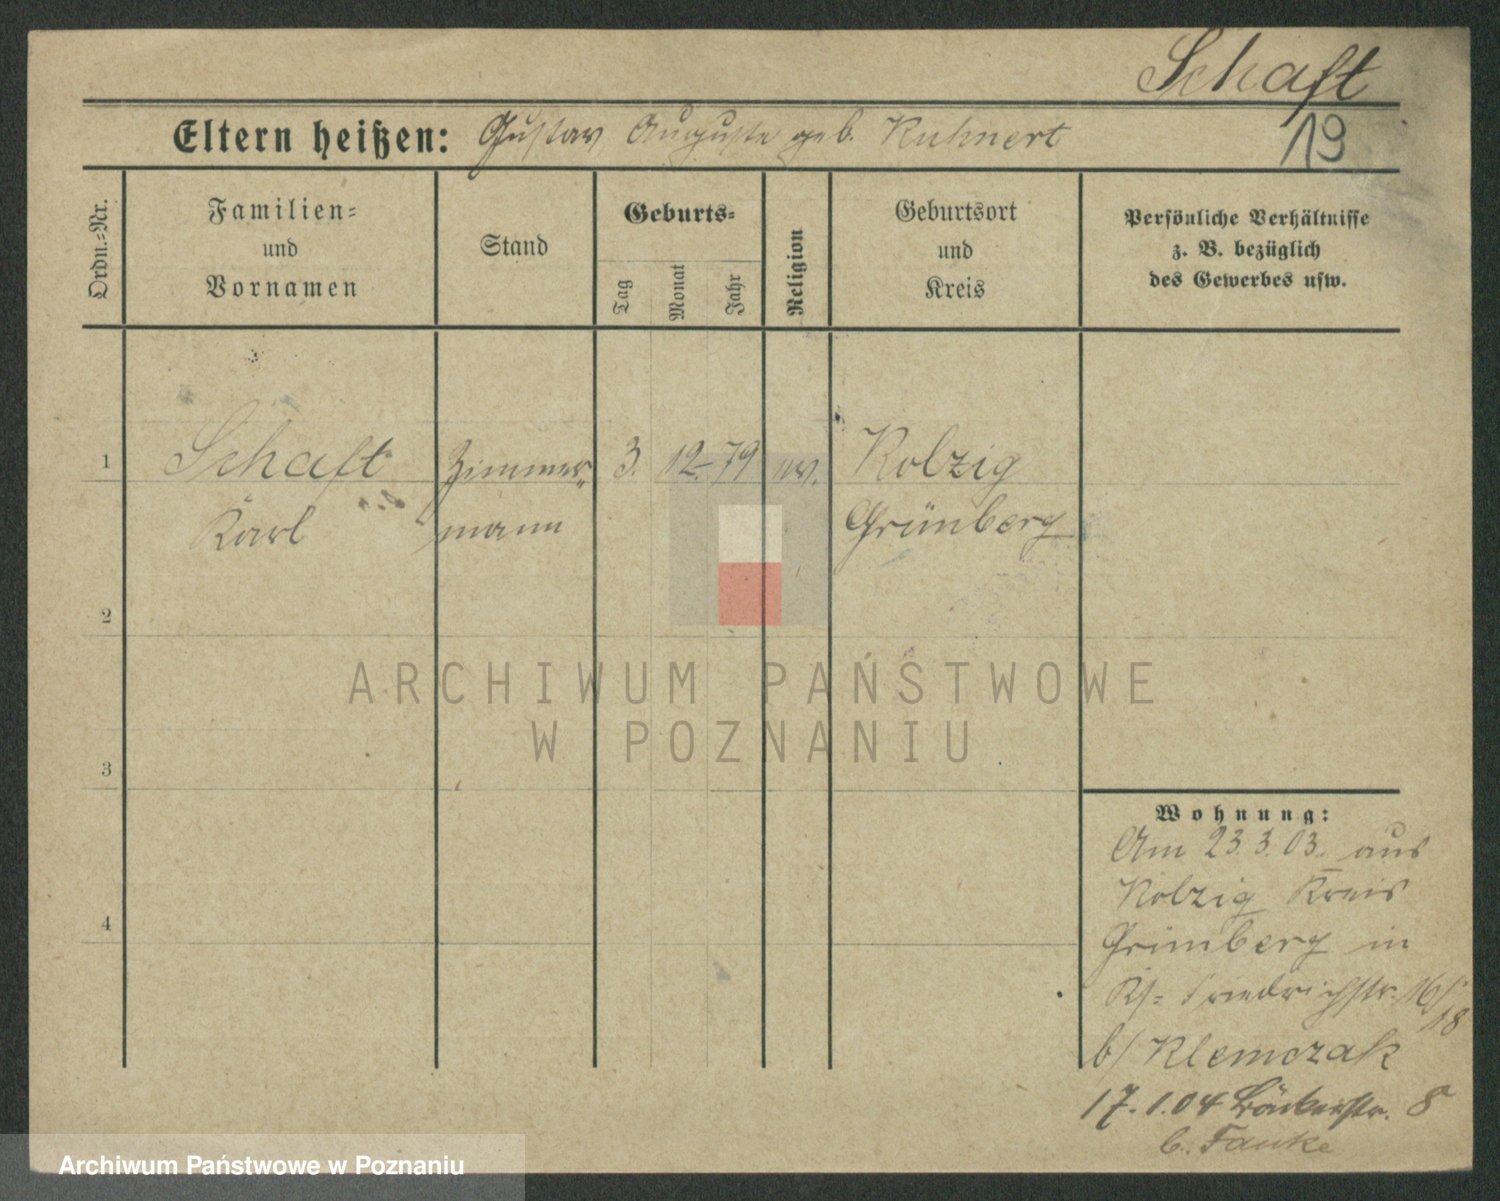 Schaft
Eltern heißen: Gustav Auguste geb. Kuhnert
19
Ordn.=Nr.
Familien=
und
Vornamen
Stand
Geburts=
Tag
Monat
Jahr
Religion
Geburtsort
und
Kreis
Persönliche Verhältnisse
z. B. bezüglich
des Gewerbes usw.
1
Schaft
Karl
Zimmer„
mann
3. 12. 79
ev.
Kolzig
Grünberg
2
3
4
ARCHIWUM PAŃSTWOWE
W POZNANIU
Wohnung:
Am 23.3.03. aus
Kolzig Kreis
Grünberg in
Friedrichstr. 16/
18
b/ Klemczak
17.1.04 Bäckerstr. 8
b. Fauke
Archiwum Państwowe w Poznaniu